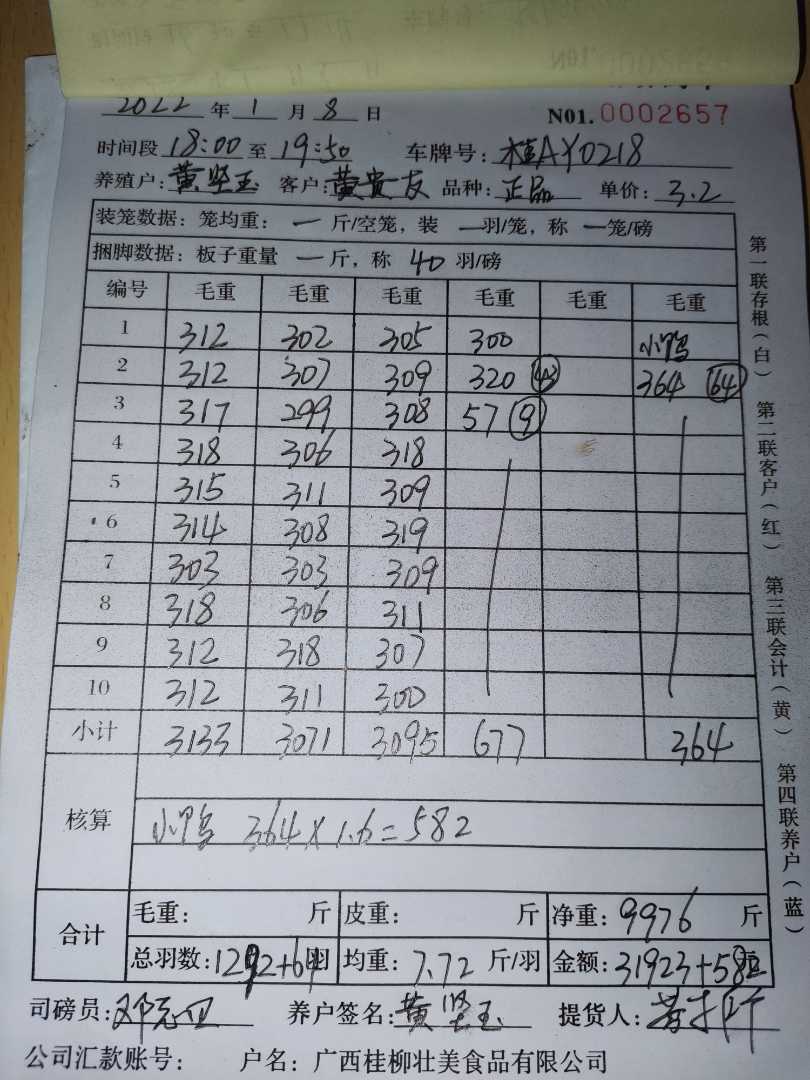 2022 年 1 月 8 日 N01. 0002657
时间段 18:00 至 19:50 车牌号: 桂AY0218
养殖户: 黄坚玉 客户: 黄贵友 品种: 正品 单价: 3.2
装笼数据: 笼均重: 一 斤/空笼, 装 一羽/笼, 称 一笼/磅
捆脚数据: 板子重量 一 斤, 称 40 羽/磅
编号 毛重 毛重 毛重 毛重 毛重 毛重
1 312 302 305 300 小鸭
2 312 307 309 320 (43) 364 (64)
3 317 299 308 57 (9)
4 318 306 318
5 315 311 309
6 314 308 319
7 303 303 309
8 318 306 311
9 312 318 307
10 312 311 300
小计 3133 3071 3095 677 364
核算
小鸭 364×1.6=582
合计
毛重: 斤 皮重: 斤 净重: 9976 斤
总羽数: 1292+64羽 均重: 7.72 斤/羽 金额: 31923+582
司磅员: 养户签名: 黄坚玉 提货人:
公司汇款账号: 户名: 广西桂柳壮美食品有限公司
第一联存根(白) 第二联客户(红) 第三联会计(黄) 第四联养户(蓝)